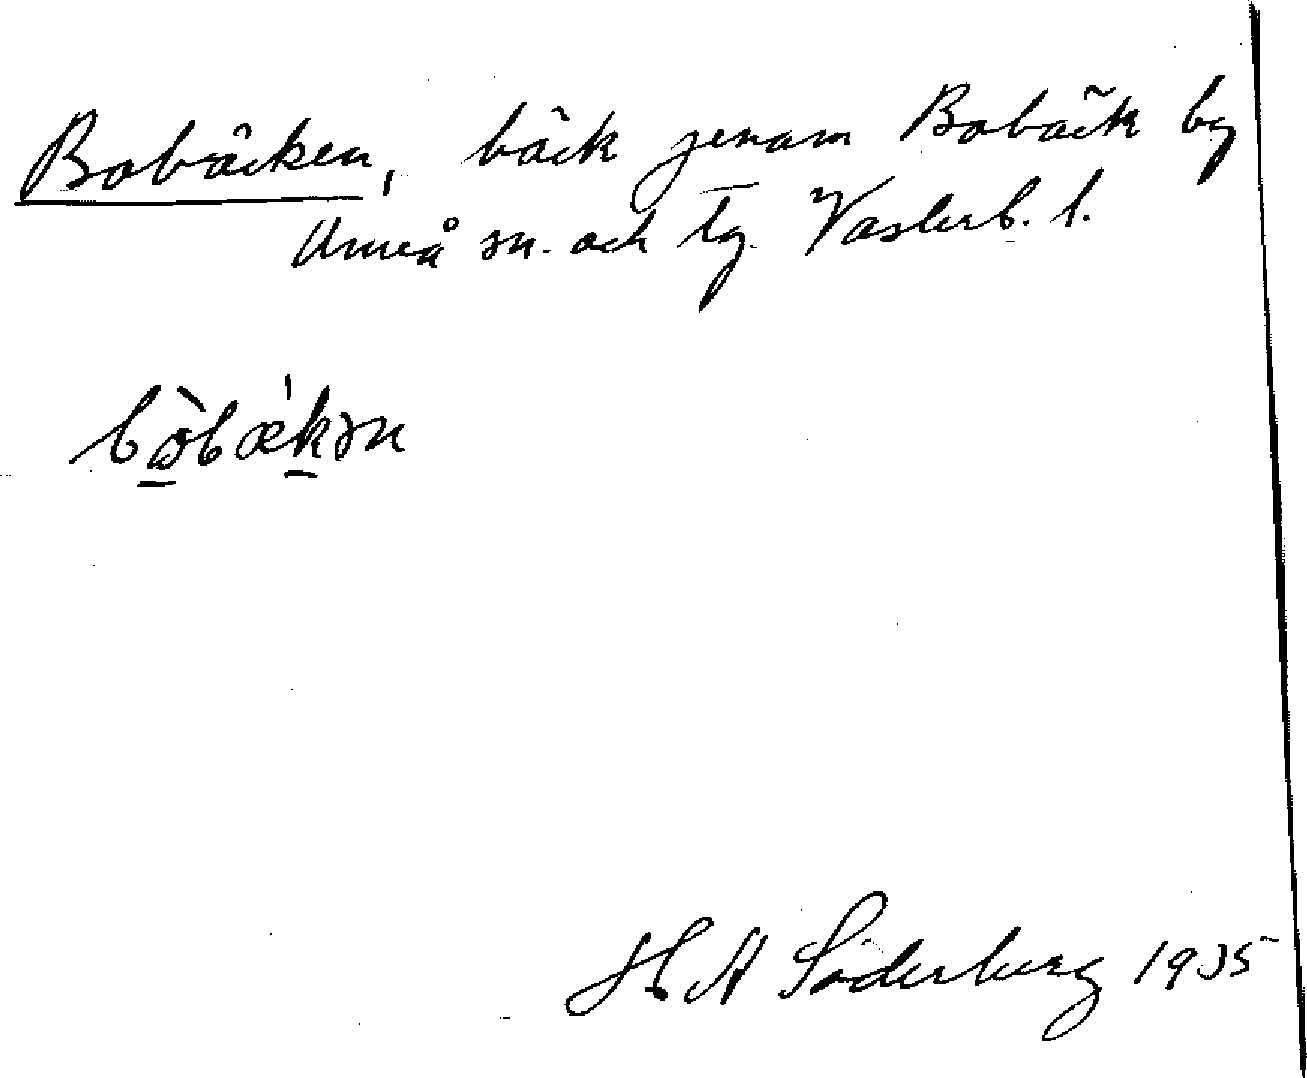 Bobäcken, bäck genom Bobäck by
Umeå sn. och tg. Västerb. l.
bòbæ̍kən
H A Söderberg 1935